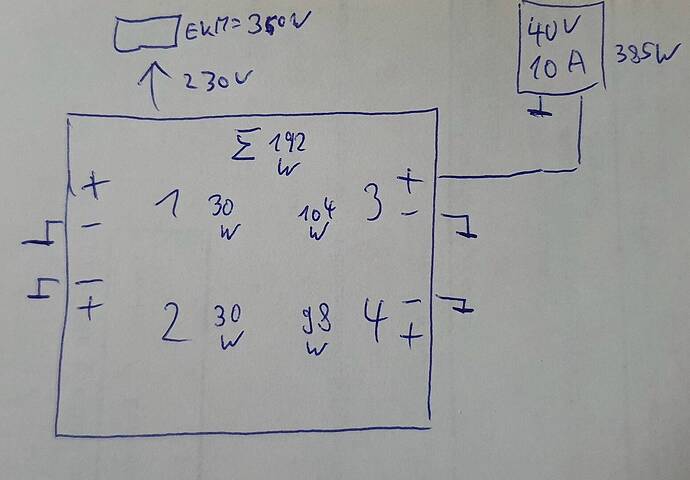 EKM=350W
230V
40V
10A
385W
Σ 192
W
+
-
1 30
W
104 3
W
+
-
-
+
2 30
W
98 4
W
-
+